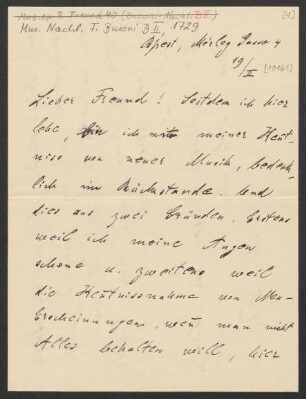 Mus. ep. R. Freund 49 (Busoni-Nachl. B II)
Mus. Nachl. F. Busoni B II, 1729
Bpest, Mérleg Gasse 4
19/X
Lieber Freund! Seitdem ich hier
lebe, bin ich mit meiner Kent-
niss von neuer Musik, bedenk-
lich im Rückstande. Und
dies aus zwei Gründen. Erstens
weil ich meine Augen
schone u. zweitens weil
die Kentnissnahme von Neu-
Erscheinungen, wen man nicht
Alles behalten will, hier